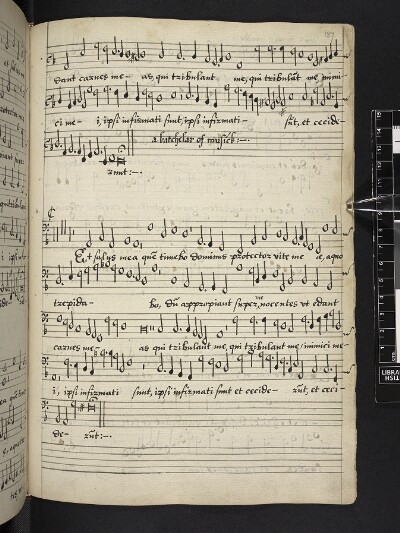 dant carnes me- as, qui tribulant me, qui tribulāt me, inimi-
ci me- i, ipsi infirmati sunt, ipsi infirmati- sūt, et cecide-
a batchelar of musick:-.
runt:-.
Et salus mea quē timebo dominus protector vite me e, a quo
trepida- bo, dū appropiant super me nocentes vt edant
carnes me- as qui tribulant me, qui tribulant me, inimici me-
i, ipsi infirmati sunt, ipsi infirmati sunt et cecide- rūt, et ceci-
de- rūt:-.